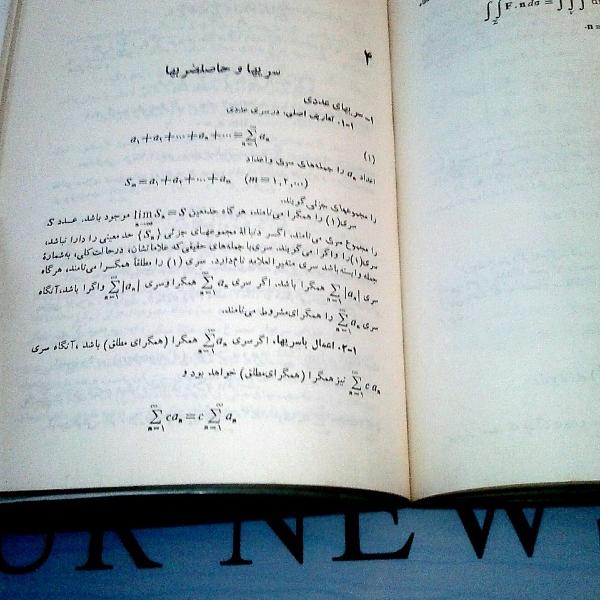 ۴
سریها و حاصلضربها
۱- سریهای عددی
۱-۱. تعاریف اصلی. در سری عددی
(۱) a₁+a₂+···+aₙ+···≡∑ₙ₌₁^∞ aₙ
اعداد aₙ را جمله‌های سری و اعداد
Sₙ=a₁+a₂+...+aₙ (m=۱,۲,...)
را مجموعهای جزئی گویند.
سری (۱) را همگرا می‌نامند، هرگاه حد معین lim Sₙ=S موجود باشد. عدد S
را مجموع سری می‌نامند. اگر دنبالهٔ مجموعهای جزئی {Sₙ} حد معینی را دارا نباشد،
سری (۱) را واگرا می‌گویند. سری با جمله‌های حقیقی که علاماتشان، در حالت کلی، به شمارهٔ
جمله وابسته باشد سری متغیرالعلامه نام دارد. سری (۱) را مطلقاً همگرا می‌نامند، هرگاه
سری ∑ₙ₌₁^∞ |aₙ| همگرا باشد. اگر سری ∑ₙ₌₁^∞ aₙ همگرا و سری ∑ₙ₌₁^∞ |aₙ| واگرا باشد، آنگاه
سری ∑ₙ₌₁^∞ aₙ را همگرای مشروط می‌نامند.
۱-۲. اعمال با سریها. اگر سری ∑ₙ₌₁^∞ aₙ همگرا (همگرای مطلق) باشد، آنگاه سری
∑ₙ₌₁^∞ c aₙ نیز همگرا (همگرای مطلق) خواهد بود و
∑ₙ₌₁^∞ caₙ=c ∑ₙ₌₁^∞ aₙ
∫∫ F.n dσ = ∫∫∫
UR NEW